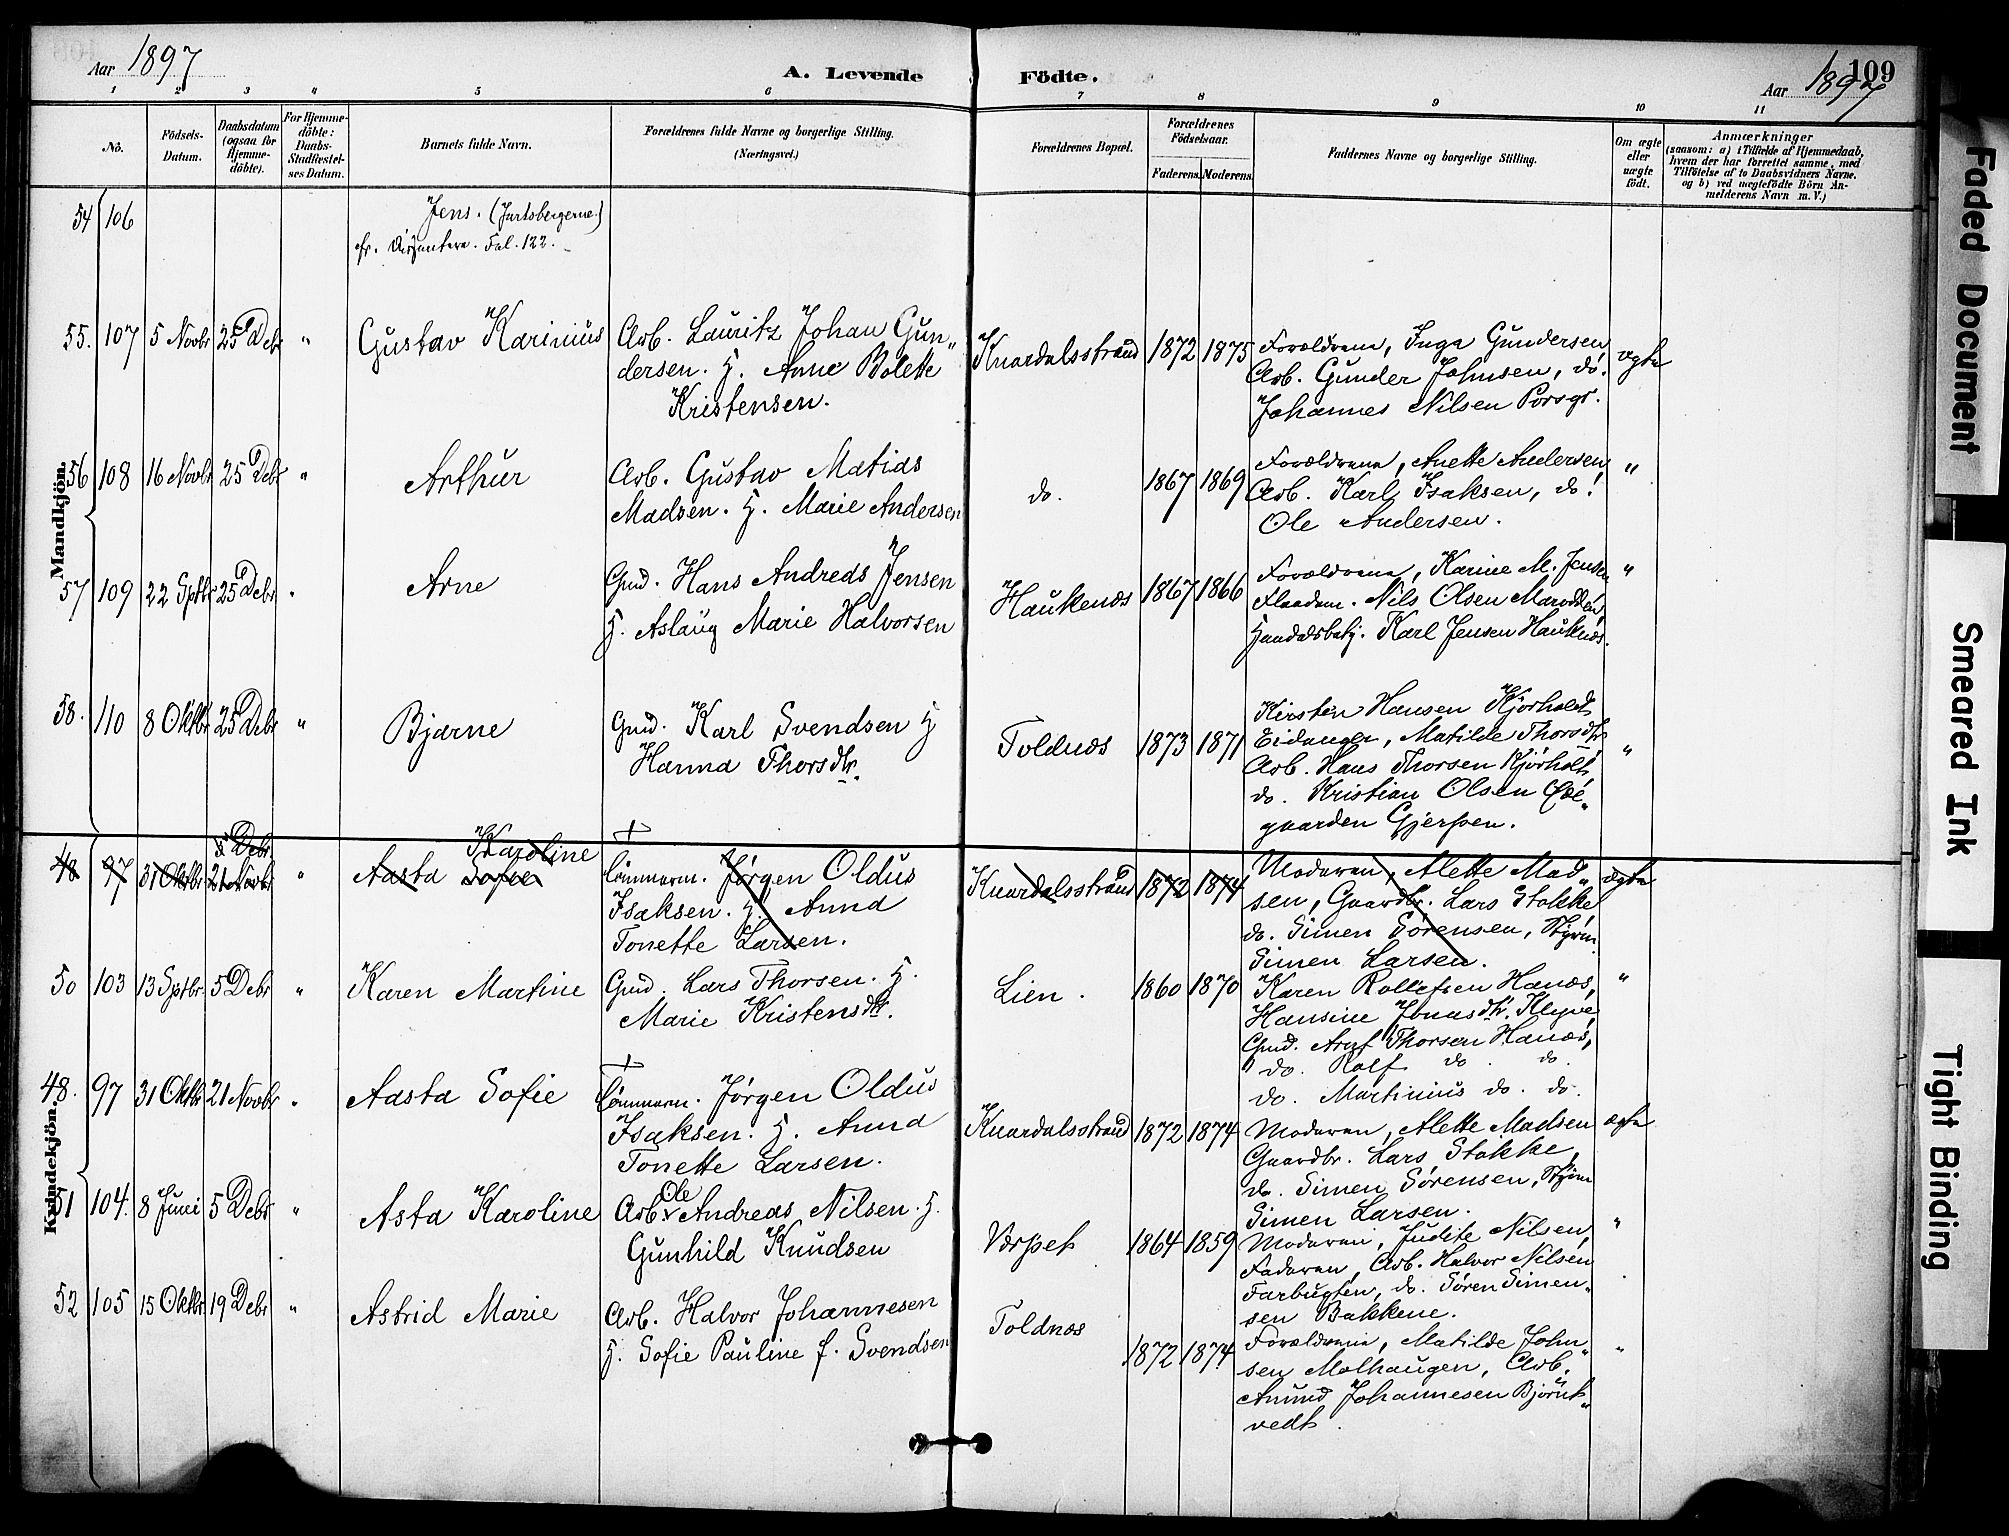 Aar 1897
A. Levende Födte.
Aar 1897
109
1 2 3 4 5 6 7 8 9 10 11
No.
Födsels-Datum.
Daabsdatum (ogsaa for Hjemme-döbte).
For Hjemme-döbte: Daabs-Stadfæstel-ses Datum.
Barnets fulde Navn.
Forældrenes fulde Navne og borgerlige Stilling. (Næringsvei.)
Forældrenes Bopæl.
Forældrenes Födselsaar.
Faderens. Moderens.
Faddernes Navne og borgerlige Stilling.
Om ægte eller uægte födt.
Anmærkninger
(saasom: a) i Tilfælde af Hjemmedaab,
hvem der har forrettet samme, med
Tilföielse af to Daabsvidners Navne.
og b) ved uægtefödte Börn An-
melderens Navn m. V.)
Mandkjön.
54 106 Jens. (Jarlsbergerne.)
fr. Fol. 122.
55. 107 5 Novbr 25 Debr " Gustav Karinius Arb. Lauritz Johan Gun„
dersen. H. Anne Bolette
Kristensen.
Knardalsstrand 1872 1875 Forældrene, Inga Gundersen, ægte
Arb. Gunder Johnsen, do.
Johannes Nilsen Porsgr.
56 108 16 Novbr 25 Debr " Arthur Arb. Gustav Matias
Madsen. H. Marie Andersen
do. 1867 1869 Forældrene, Anette Andersen "
Arb. Karl Isaksen, do.
Ole Andersen.
57 109 22 Sptbr 25 Debr " Arne Gmd. Hans Andreas Jensen
H. Aslaug Marie Halvorsen
Haukenæs 1867 1866 Forældrene, Karine M. Jensen "
Nils Olsen
Karl Jensen Hauknæs.
58. 110 8 Oktbr 25 Debr " Bjarne Gmd. Karl Svendsen H
Hanna Thorsdtr.
Toldnæs 1873 1871 Kirsten Hansen Kjørholt
Eidanger, Matilde Thorsdtr, "
Arb. Hans Thorsen Kjørholt,
do. Kristian Olsen
gaarden Gjerpen.
Kvindekjön.
5 Debr Karoline †
48 97 31 Oktbr 21 Novbr " Aasta Sofie Tømmerm. Jørgen Oldus
Isaksen. H. Anna
Tonette Larsen.
Knardalsstrand 1872 1874 Moderen, Alette Mad„ ægte
sen, Gaardbr. Lars Stokke
do. Simen Sørensen, Styrm
Simen Larsen.
50 103 13 Sptbr 5 Debr " Karen Martine Gmd. Lars Thorsen. H.
Marie Kristensdtr.
Lien. 1860 1870 Karen Rollefsen Hanæs, "
Hansine Jonasdtr. Klyve,
Gmd. Arnt Thorsen Hanæs,
do. Rolf do do.
do. Martinius do. do.
†
48. 97 31 Oktbr 21 Novbr " Aasta Sofie Tømmerm. Jørgen Oldus
Isaksen. H. Anna
Tonette Larsen.
Knardalsstrand 1872 1874 Moderen, Alette Madsen ægte
Gaardbr. Lars Stokke,
do. Simen Sørensen, Styrm
Simen Larsen.
51 104. 8 Juni 5 Debr " Asta Karoline Arb. Ole Andreas Nilsen. H.
Gunhild Knudsen
Værpet 1864 1859 Moderen, Judite Nilsen, "
Faderen, Arb. Halvor Nilsen
Farbugten, do. Søren Simen„
sen Bakkene.
52 105 15 Oktbr 19 Debr " Astrid Marie Arb. Halvor Johannesen
H. Sofie Pauline f. Svendsen
Toldnæs 1872 1874 Forældrene, Matilde John„ "
sen Molhaugen, Arb.
Anund Johannesen Bjørnt„
vedt.
Faded Document
Smeared Ink
Tight Binding